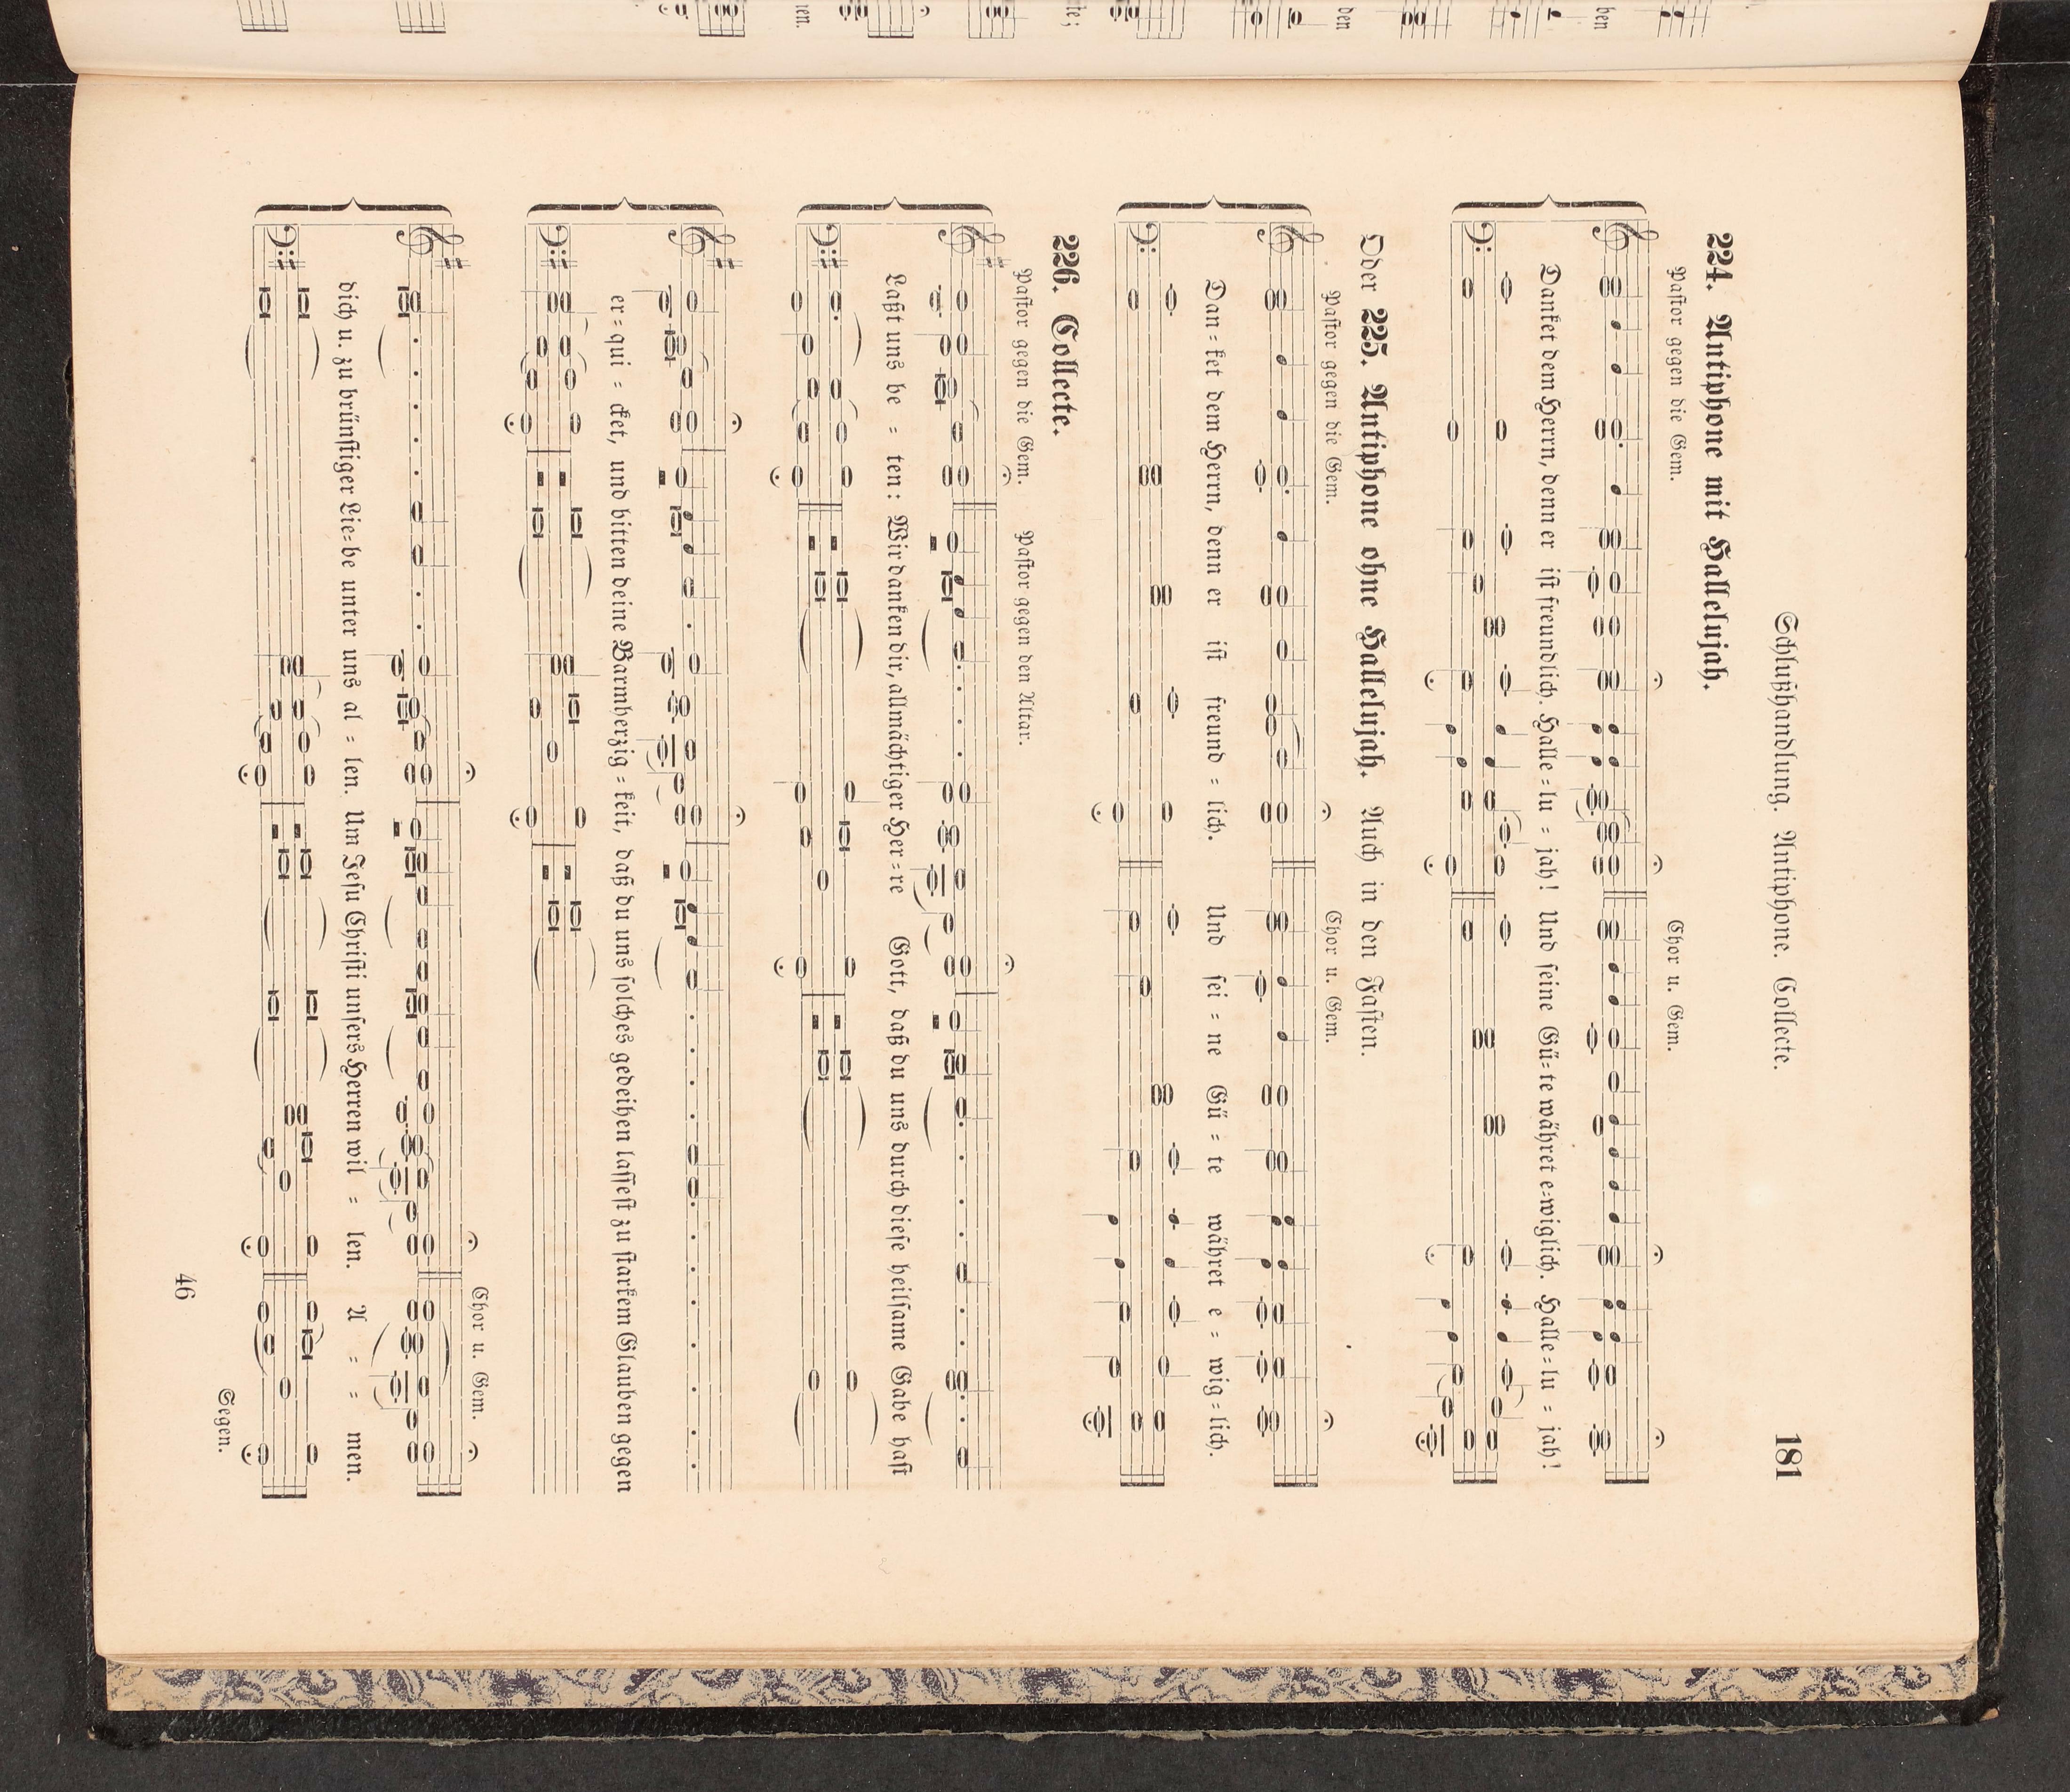 Schlußhandlung. Antiphone. Collecte. 181
224. Antiphone mit Hallelujah.
Pastor gegen die Gem. Chor u. Gem.
Danket dem Herrn, denn er ist freundlich. Halle=lu = jah! Und seine Gü=te währet e=wiglich. Halle=lu = jah!
Oder 225. Antiphone ohne Hallelujah. Auch in den Fasten.
Pastor gegen die Gem. Chor u. Gem.
Dan = ket dem Herrn, denn er ist freund = lich. Und sei = ne Gü = te währet e = wig=lich.
226. Collecte.
Pastor gegen die Gem. Pastor gegen den Altar.
Laßt uns be = ten: Wir danken dir, allmächtiger Her=re Gott, daß du uns durch diese heilsame Gabe hast
er=qui = cket, und bitten deine Barmherzig = keit, daß du uns solches gedeihen lassest zu starkem Glauben gegen
Chor u. Gem.
dich u. zu brünstiger Lie=be unter uns al = len. Um Jesu Christi unsers Herren wil = len. A = = men.
Segen.
46
ben
den
te;
nen.